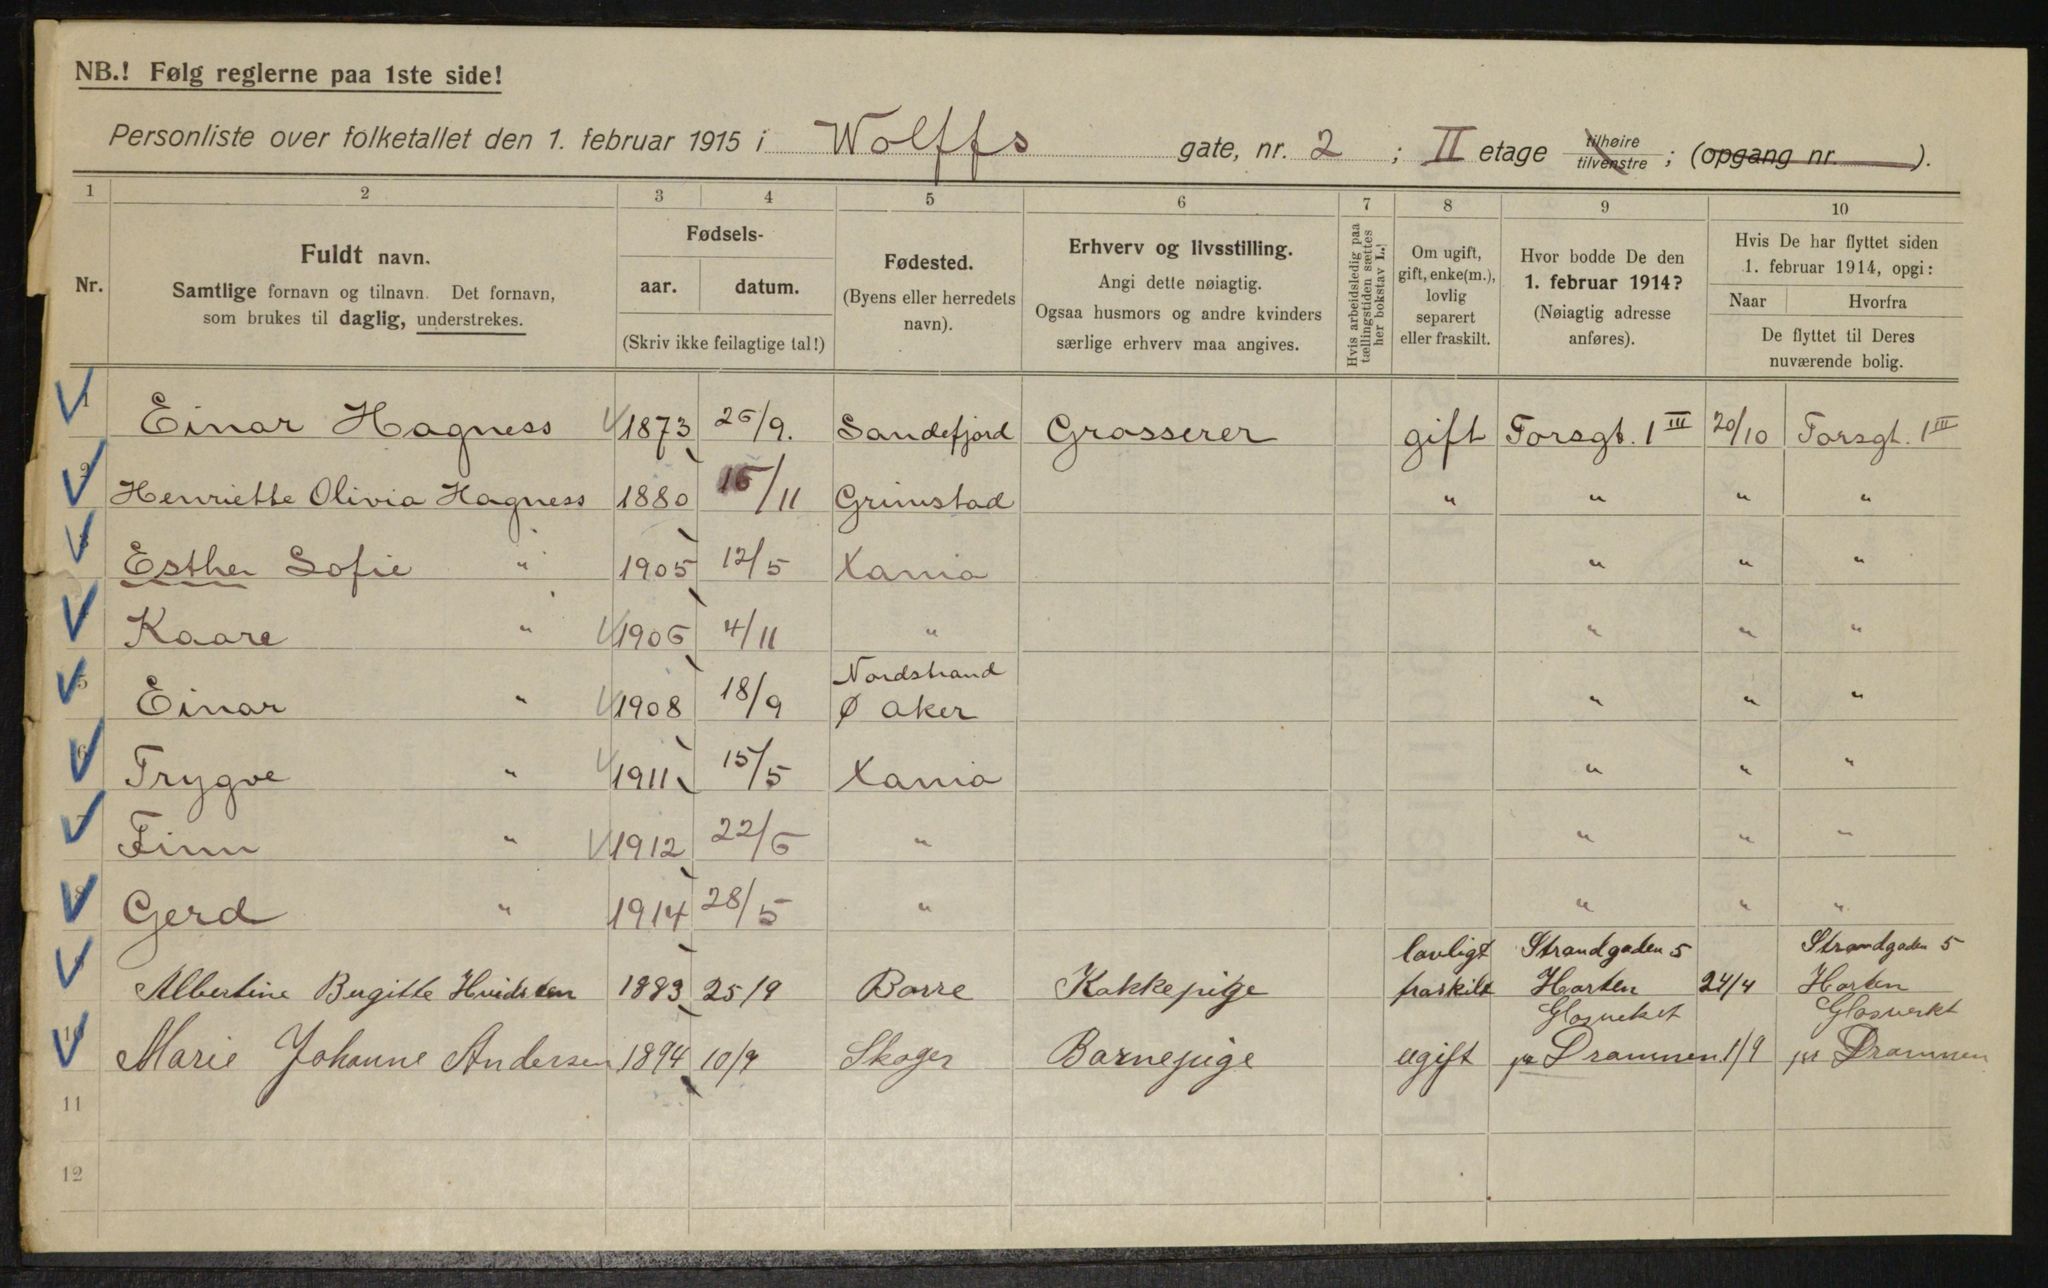 NB.! Følg reglerne paa 1ste side!
Personliste over folketallet den 1. februar 1915 i Wolffs gate, nr. 2 ; II etage tilhøire tilvenstre ; (opgang nr. ).
1 2 3 4 5 6 7 8 9 10
Nr.
Fuldt navn.
Samtlige fornavn og tilnavn. Det fornavn,
som brukes til daglig, understrekes.
Fødsels-
aar. datum.
(Skriv ikke feilagtige tal!)
Fødested.
(Byens eller herredets
navn).
Erhverv og livsstilling.
Angi dette nøiagtig.
Ogsaa husmors og andre kvinders
særlige erhverv maa angives.
Hvis arbeidsledig paa
tællingstiden sættes
her bokstav L.!
Om ugift,
gift, enke(m.),
lovlig
separert
eller fraskilt.
Hvor bodde De den
1. februar 1914?
(Nøiagtig adresse
anføres).
Hvis De har flyttet siden
1. februar 1914, opgi:
Naar Hvorfra
De flyttet til Deres
nuværende bolig.
1 Einar Hagness 1873 26/9. Sandefjord Grosserer gift Forsgt. 1 III 20/10 Forsgt. 1 III
2 Henriette Olivia Hagness 1880 16/11 Grimstad " " " "
3 Esther Sofie " 1905 12/5 Xania " " "
4 Kaare " 1906 4/11 " " " "
5 Einar " 1908 18/9 Nordstrand
Ø Aker " " "
6 Trygve " 1911 15/5 Xania " " "
7 Finn " 1912 22/6 " " " "
8 Gerd " 1914 28/5 " " " "
9 Albertine Bergitte Hvidsten 1883 25/9 Borre Kokkepige lovligt fraskilt Strandgaden 5 Horten 24/4 Strandgaden 5 Horten
10 Marie Johanne Andersen 1894 10/9 Skoger Barnepige ugift Glasverket pr Drammen 1/9 Glasverkt pr Drammen
11
12